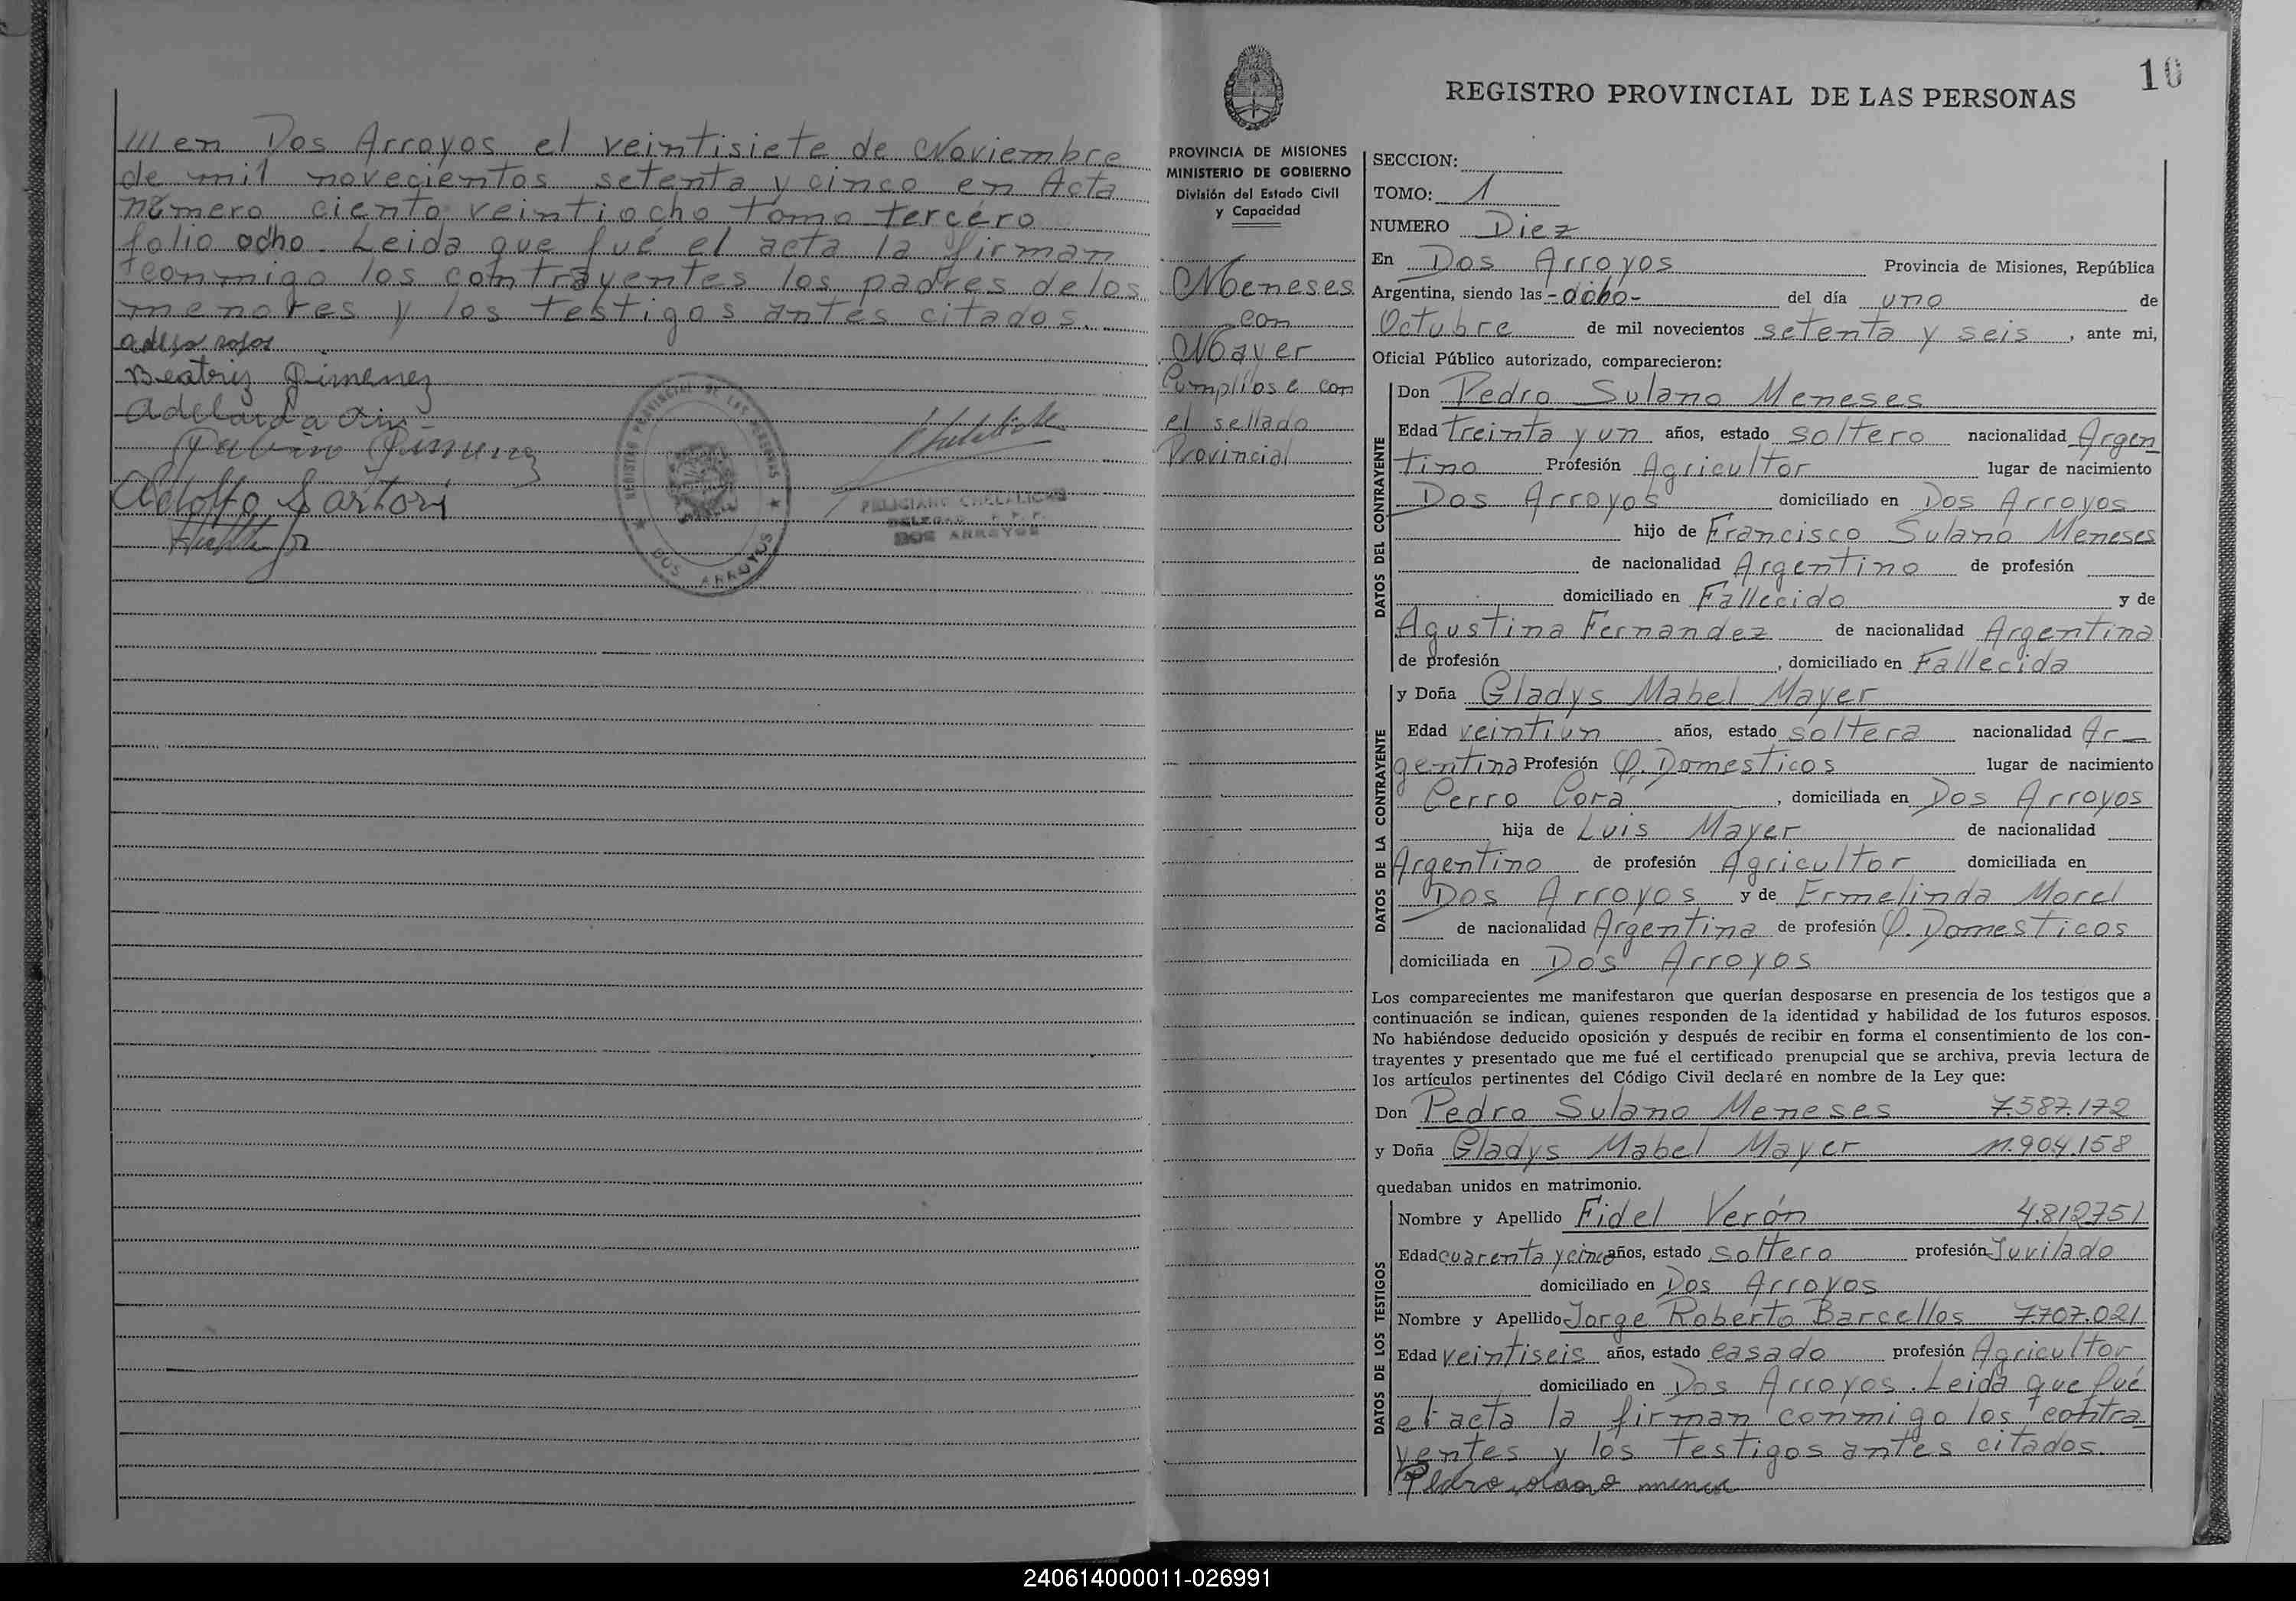 /// en Dos Arroyos el veintisiete de Noviembre
de mil novecientos setenta y cinco en Acta
número ciento veintiocho tomo tercero
folio ocho. Leida que fué el acta la firman
conmigo los contrayentes los padres de los
menores y los testigos antes citados.
Beatriz Gimenez
Adolfo Sartori
REGISTRO PROVINCIAL DE LAS PERSONAS
DOS ARROYOS
FELICIANO
DOS ARROYOS
10
REGISTRO PROVINCIAL DE LAS PERSONAS
PROVINCIA DE MISIONES
MINISTERIO DE GOBIERNO
División del Estado Civil
y Capacidad
Meneses
con
Mayer
Cumplióse con
el sellado
Provincial
SECCION:
TOMO: 1
NUMERO Diez
En Dos Arroyos Provincia de Misiones, República
Argentina, siendo las - ocho - del día uno de
Octubre de mil novecientos setenta y seis, ante mi,
Oficial Público autorizado, comparecieron:
DATOS DEL CONTRAYENTE
Don Pedro Sulano Meneses
Edad treinta y un años, estado soltero nacionalidad Argen
tino Profesión Agricultor lugar de nacimiento
Dos Arroyos domiciliado en Dos Arroyos
hijo de Francisco Sulano Meneses
de nacionalidad Argentino de profesión
domiciliado en Fallecido y de
Agustina Fernandez de nacionalidad Argentina
de profesión , domiciliado en Fallecida
DATOS DE LA CONTRAYENTE
y Doña Gladys Mabel Mayer
Edad veintiun años, estado soltera nacionalidad Ar-
gentina Profesión Q. Domesticos lugar de nacimiento
Cerro Corá , domiciliada en Dos Arroyos
hija de Luis Mayer de nacionalidad
Argentino de profesión Agricultor domiciliada en
Dos Arroyos y de Ermelinda Morel
de nacionalidad Argentina de profesión Q. Domesticos
domiciliada en Dos Arroyos
Los comparecientes me manifestaron que querían desposarse en presencia de los testigos que a
continuación se indican, quienes responden de la identidad y habilidad de los futuros esposos.
No habiéndose deducido oposición y después de recibir en forma el consentimiento de los con-
trayentes y presentado que me fué el certificado prenupcial que se archiva, previa lectura de
los artículos pertinentes del Código Civil declaré en nombre de la Ley que:
Don Pedro Sulano Meneses 7.587.172
y Doña Gladys Mabel Mayer 11.904.158
quedaban unidos en matrimonio.
DATOS DE LOS TESTIGOS
Nombre y Apellido Fidel Verón 4.812751
Edad cuarenta y cinco años, estado soltero profesión Juvilado
domiciliado en Dos Arroyos
Nombre y Apellido Jorge Roberto Barcellos 7.707.021
Edad veintiseis años, estado casado profesión Agricultor
domiciliado en Dos Arroyos. Leida que fué
el acta la firman conmigo los contra
yentes y los testigos antes citados.
Pedro
240614000011-026991